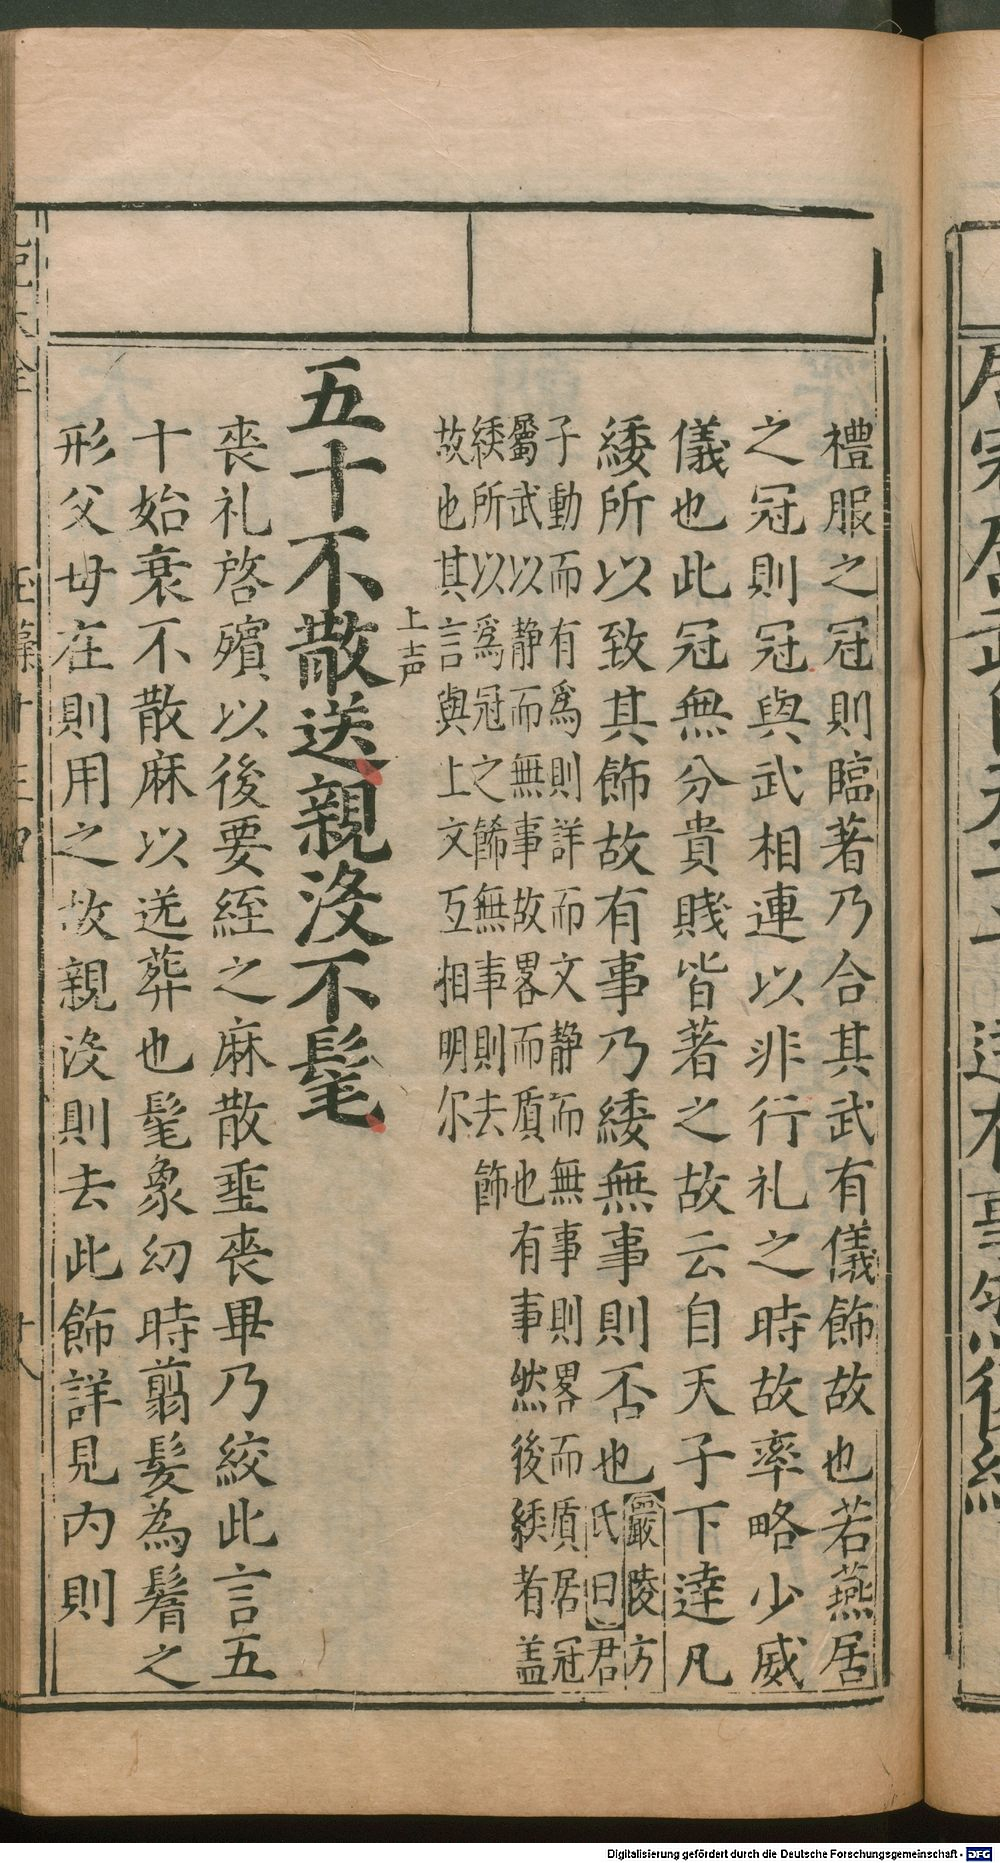 禮服之冠則臨著乃合其武有儀飾故也若燕居
之冠則冠與武相連以非行礼之時故率略少威
儀也此冠無分貴賤皆著之故云自天子下達凡
緌所以致其飾故有事乃緌無事則否也嚴陵方
氏曰君
子動而有爲則詳而文静而無事則畧而質居冠
屬武以静而無事故畧而質也有事然後緌者盖
緌所以爲冠之餙無事則去飾
故也其言與上文互相明尔
上声
五十不散送親没不髦
喪礼啓殯以後要絰之麻散垂喪畢乃絞此言五
十始衰不散麻以送葬也髦象幼時翦髮為鬌之
形父母在則用之故親没則去此飾詳見内則
Digitalisierung gefördert durch die Deutsche Forschungsgemeinschaft - DFG